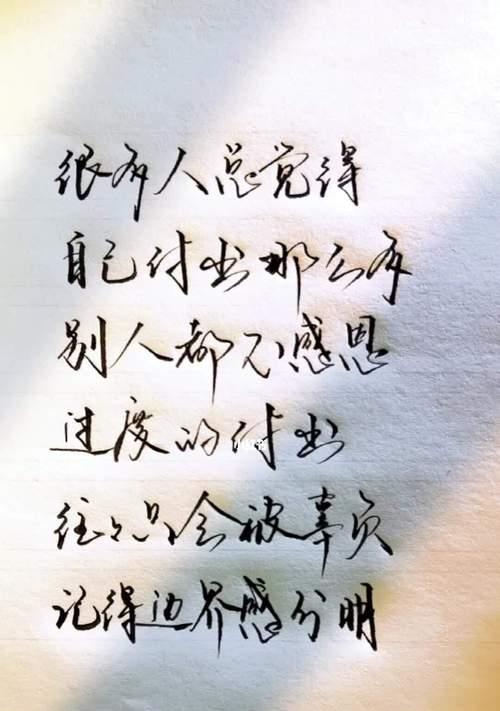 很多人总觉得
自己付出那么多
别人都不感恩
过度的付出
往々只会被辜负
记得边界感分明